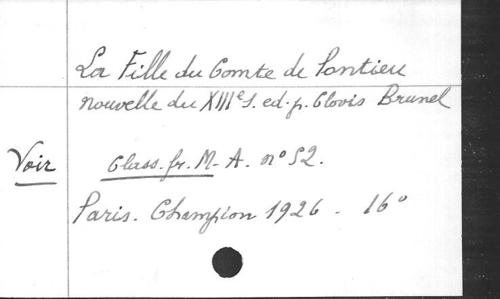 La Fille du Comte de Pontieu
nouvelle du XIIIe s. ed. p. Clovis Brunel
Voir Class. fr. M- A. no 52.
Paris. Champion 1926 - 16o